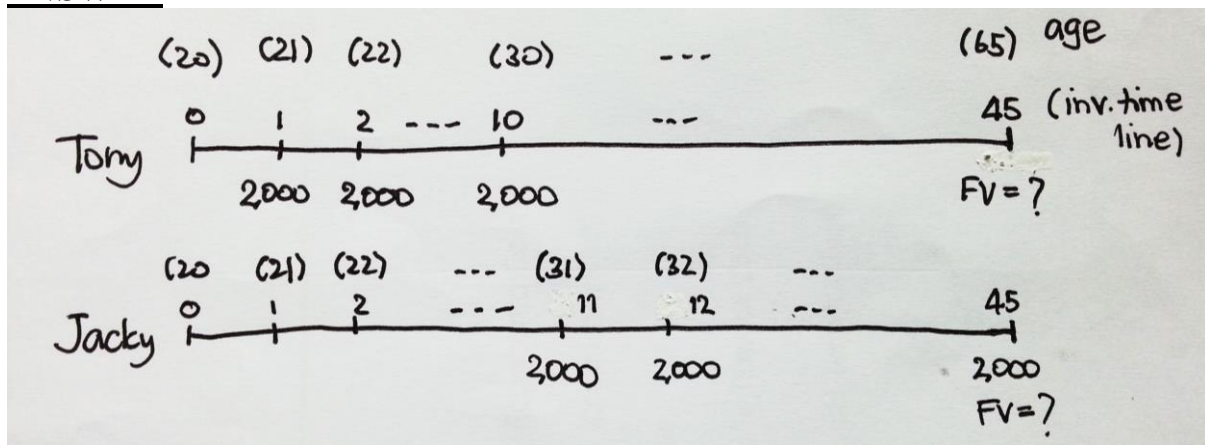 (20) (21) (22) (30) --- (65) age
0 1 2 --- 10 --- 45 (inv. time line)
Tony
2,000 2,000 2,000 FV = ?
(20 (21) (22) --- (31) (32) ---
0 1 2 ---- 11 12 --- 45
Jacky
2,000 2,000 2,000
FV = ?